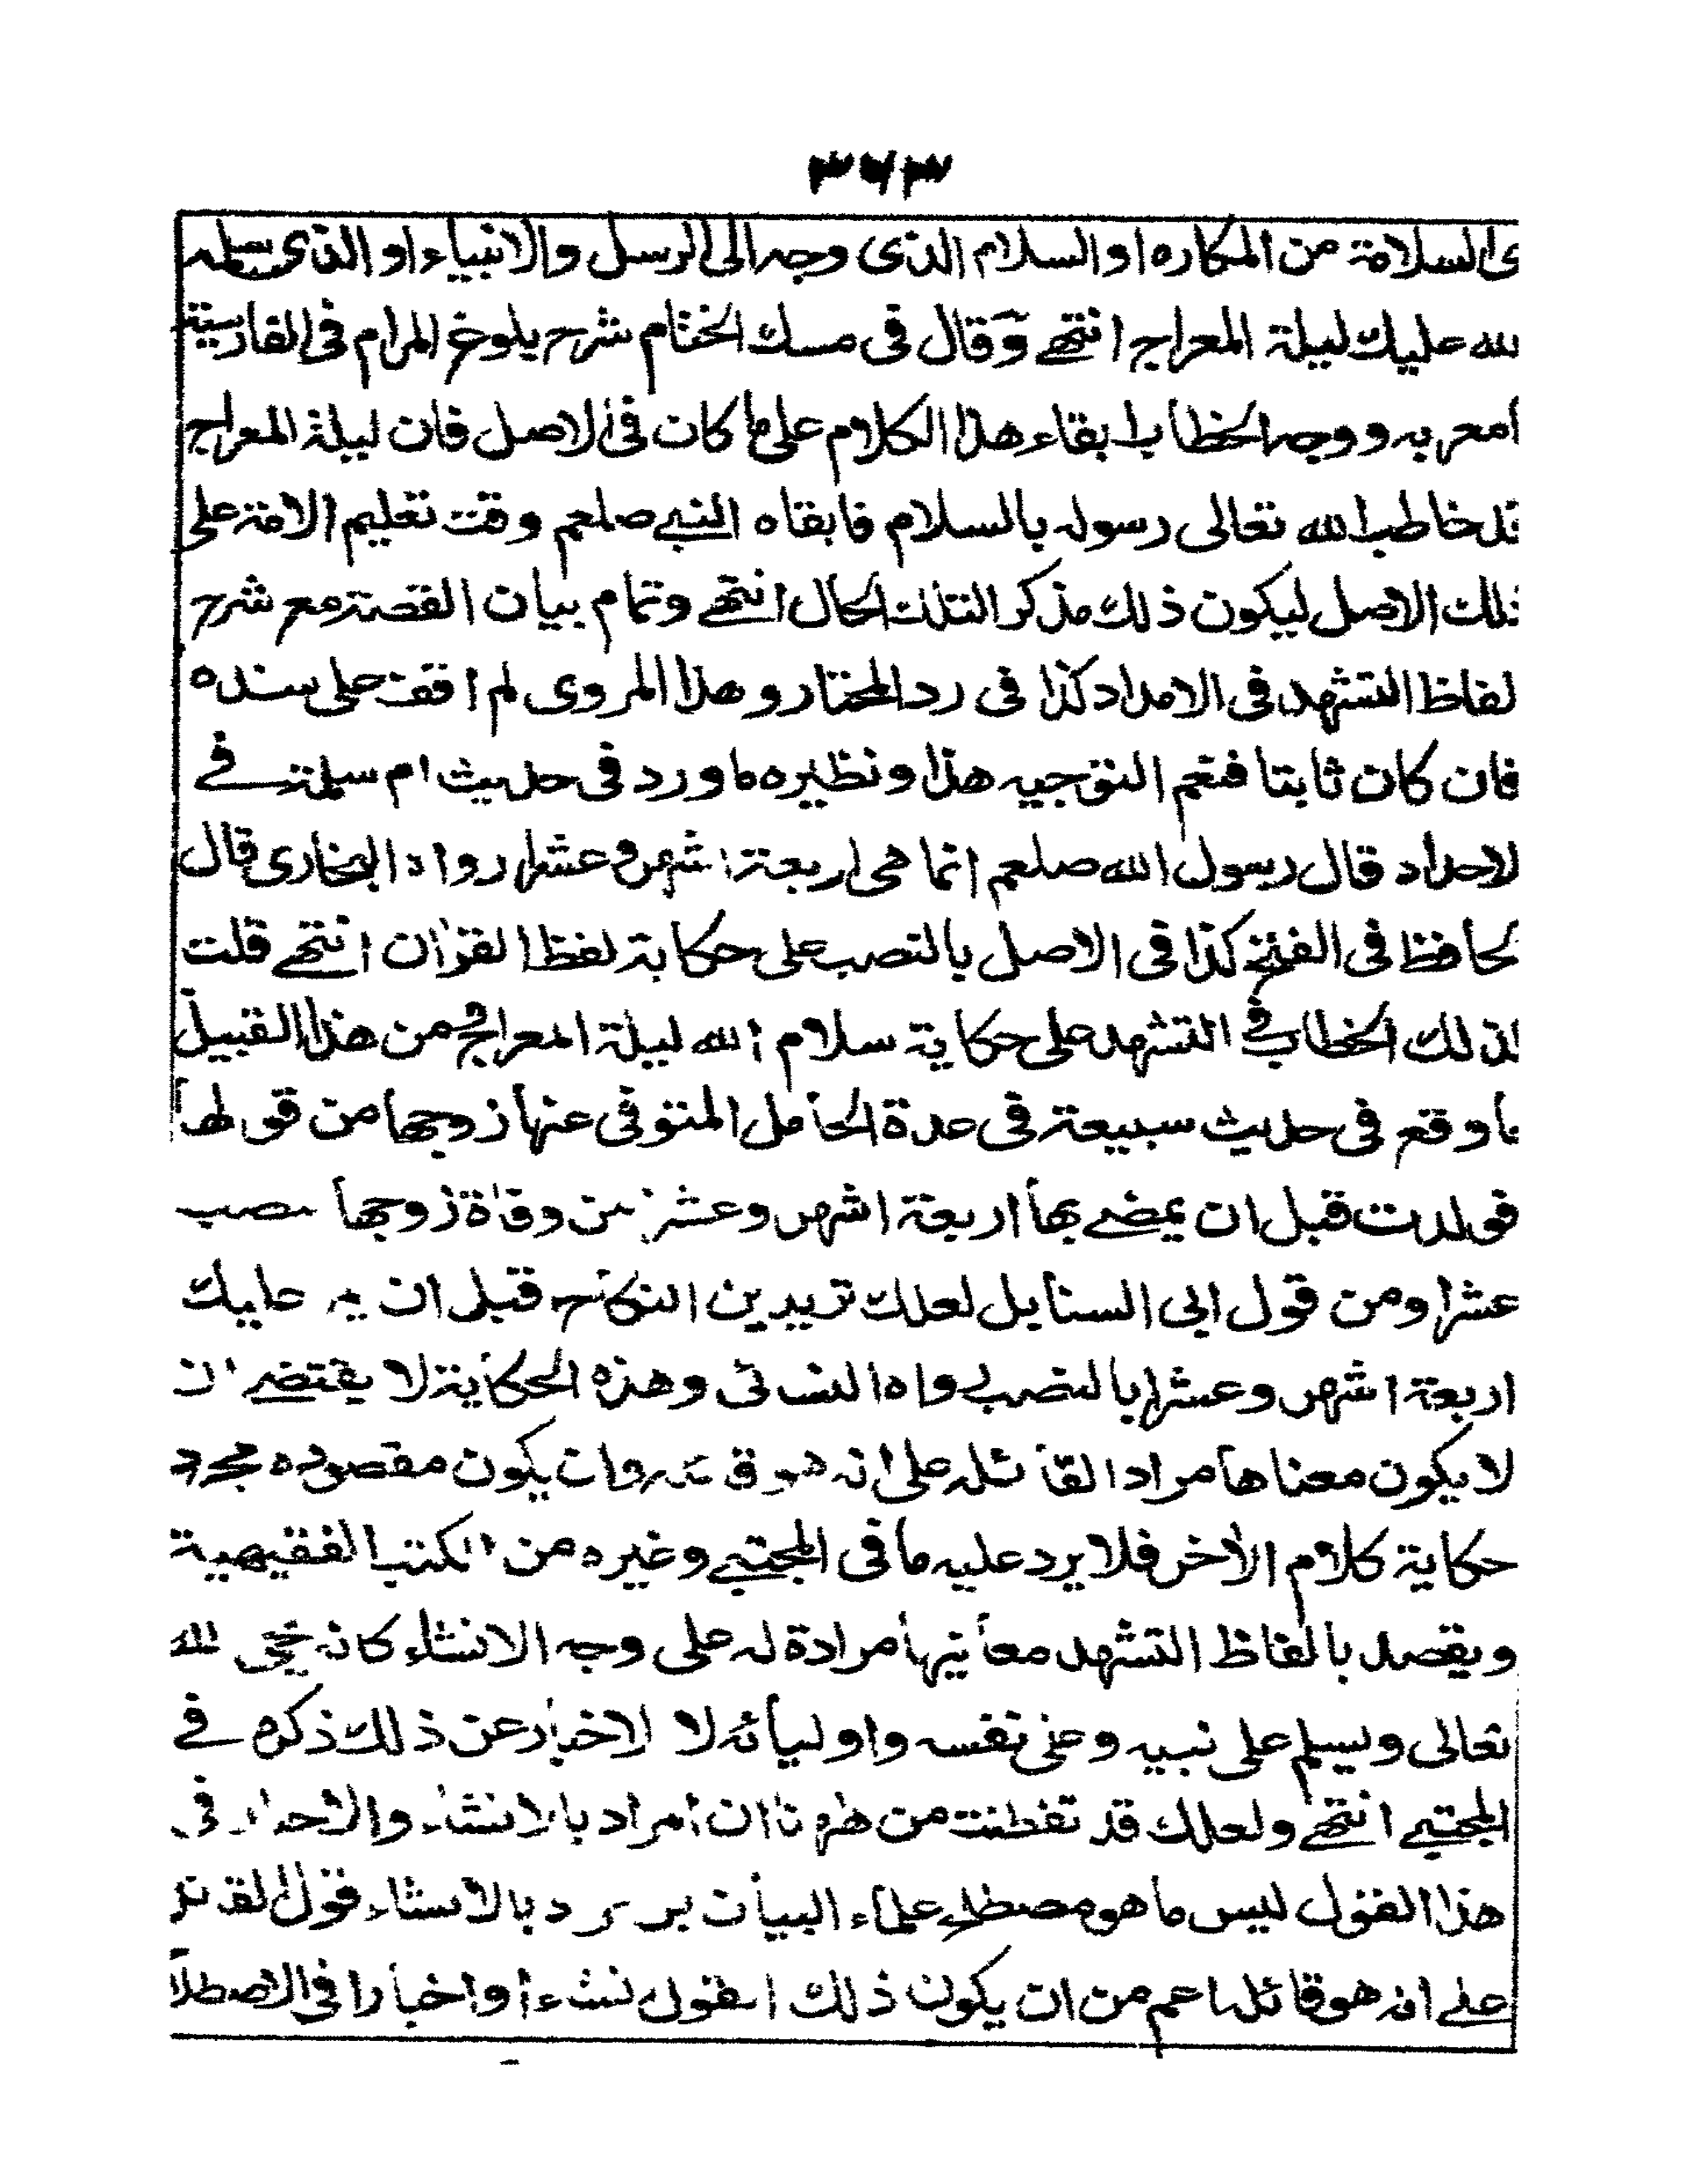 ٣٦٣
ى السلامة من المكاره او السلام الذى وجه الى الرسل والانبياء او الذى سلمه
لله عليك ليلة المعراج انتهى وقال فى مسك الختام شرح بلوغ المرام فى الفارسية
امعربه ووجه الخطاب ابقاء هذا الكلام على ما كان فى الاصل فان ليلة المعراج
قد خاطب الله تعالى رسوله بالسلام فابقاه النبى صلعم وقت تعليم الامة على
ذلك الاصل ليكون ذلك مذكرا لتلك الحال انتهى وتمام بيان القصة مع شرح
لفاظ التشهد فى الامداد كذا فى رد المحتار وهذا المروى لم اقف على سنده
فان كان ثابتا فنعم التوجيه هذا ونظيره ما ورد فى حديث ام سلمة فى
لاحداد قال رسول الله صلعم انما هى اربعة اشهر وعشرا رواه البخارى قال
لحافظ فى الفتح كذا فى الاصل بالنصب على حكاية لفظ القران انتهى قلت
لذلك الخطاب فى التشهد على حكاية سلام الله ليلة المعراج ومن هذا القبيل
ما وقع فى حديث سبيعة فى عدة الحامل المتوفى عنها زوجها من قولها
فولدت قبل ان يمضى بها اربعة اشهر وعشر من وفاة زوجها نصب
عشرا ومن قول ابى السنابل لعلك تريدين النكاح قبل ان عليك
اربعة اشهر وعشرا بالنصب رواه النسائى وهذه الحكاية لا يقتضى ان
لا يكون معناها مراد القائله على انه هو وان يكون مقصوده مجرد
حكاية كلام الأخر فلا يرد عليه ما فى المجتبى وغيره من الكتب الفقيهية
ويقصد بالفاظ التشهد معانيها مرادة له على وجه الانشاء كانه يحيى لله
تعالى ويسلم على نبيه وعلى نفسه واوليائه لا الاخبار عن ذلك ذكره فى
المجتبى انتهى ولعلك قد تفطنت من ان المراد بالانشاء والاخبار فى
هذا القول ليس ما هو مصطلح علماء البيان بالانشاء قول
على انه هو قائله اعم من ان يكون ذلك القول انشاء او اخبارا فى الاصطلا